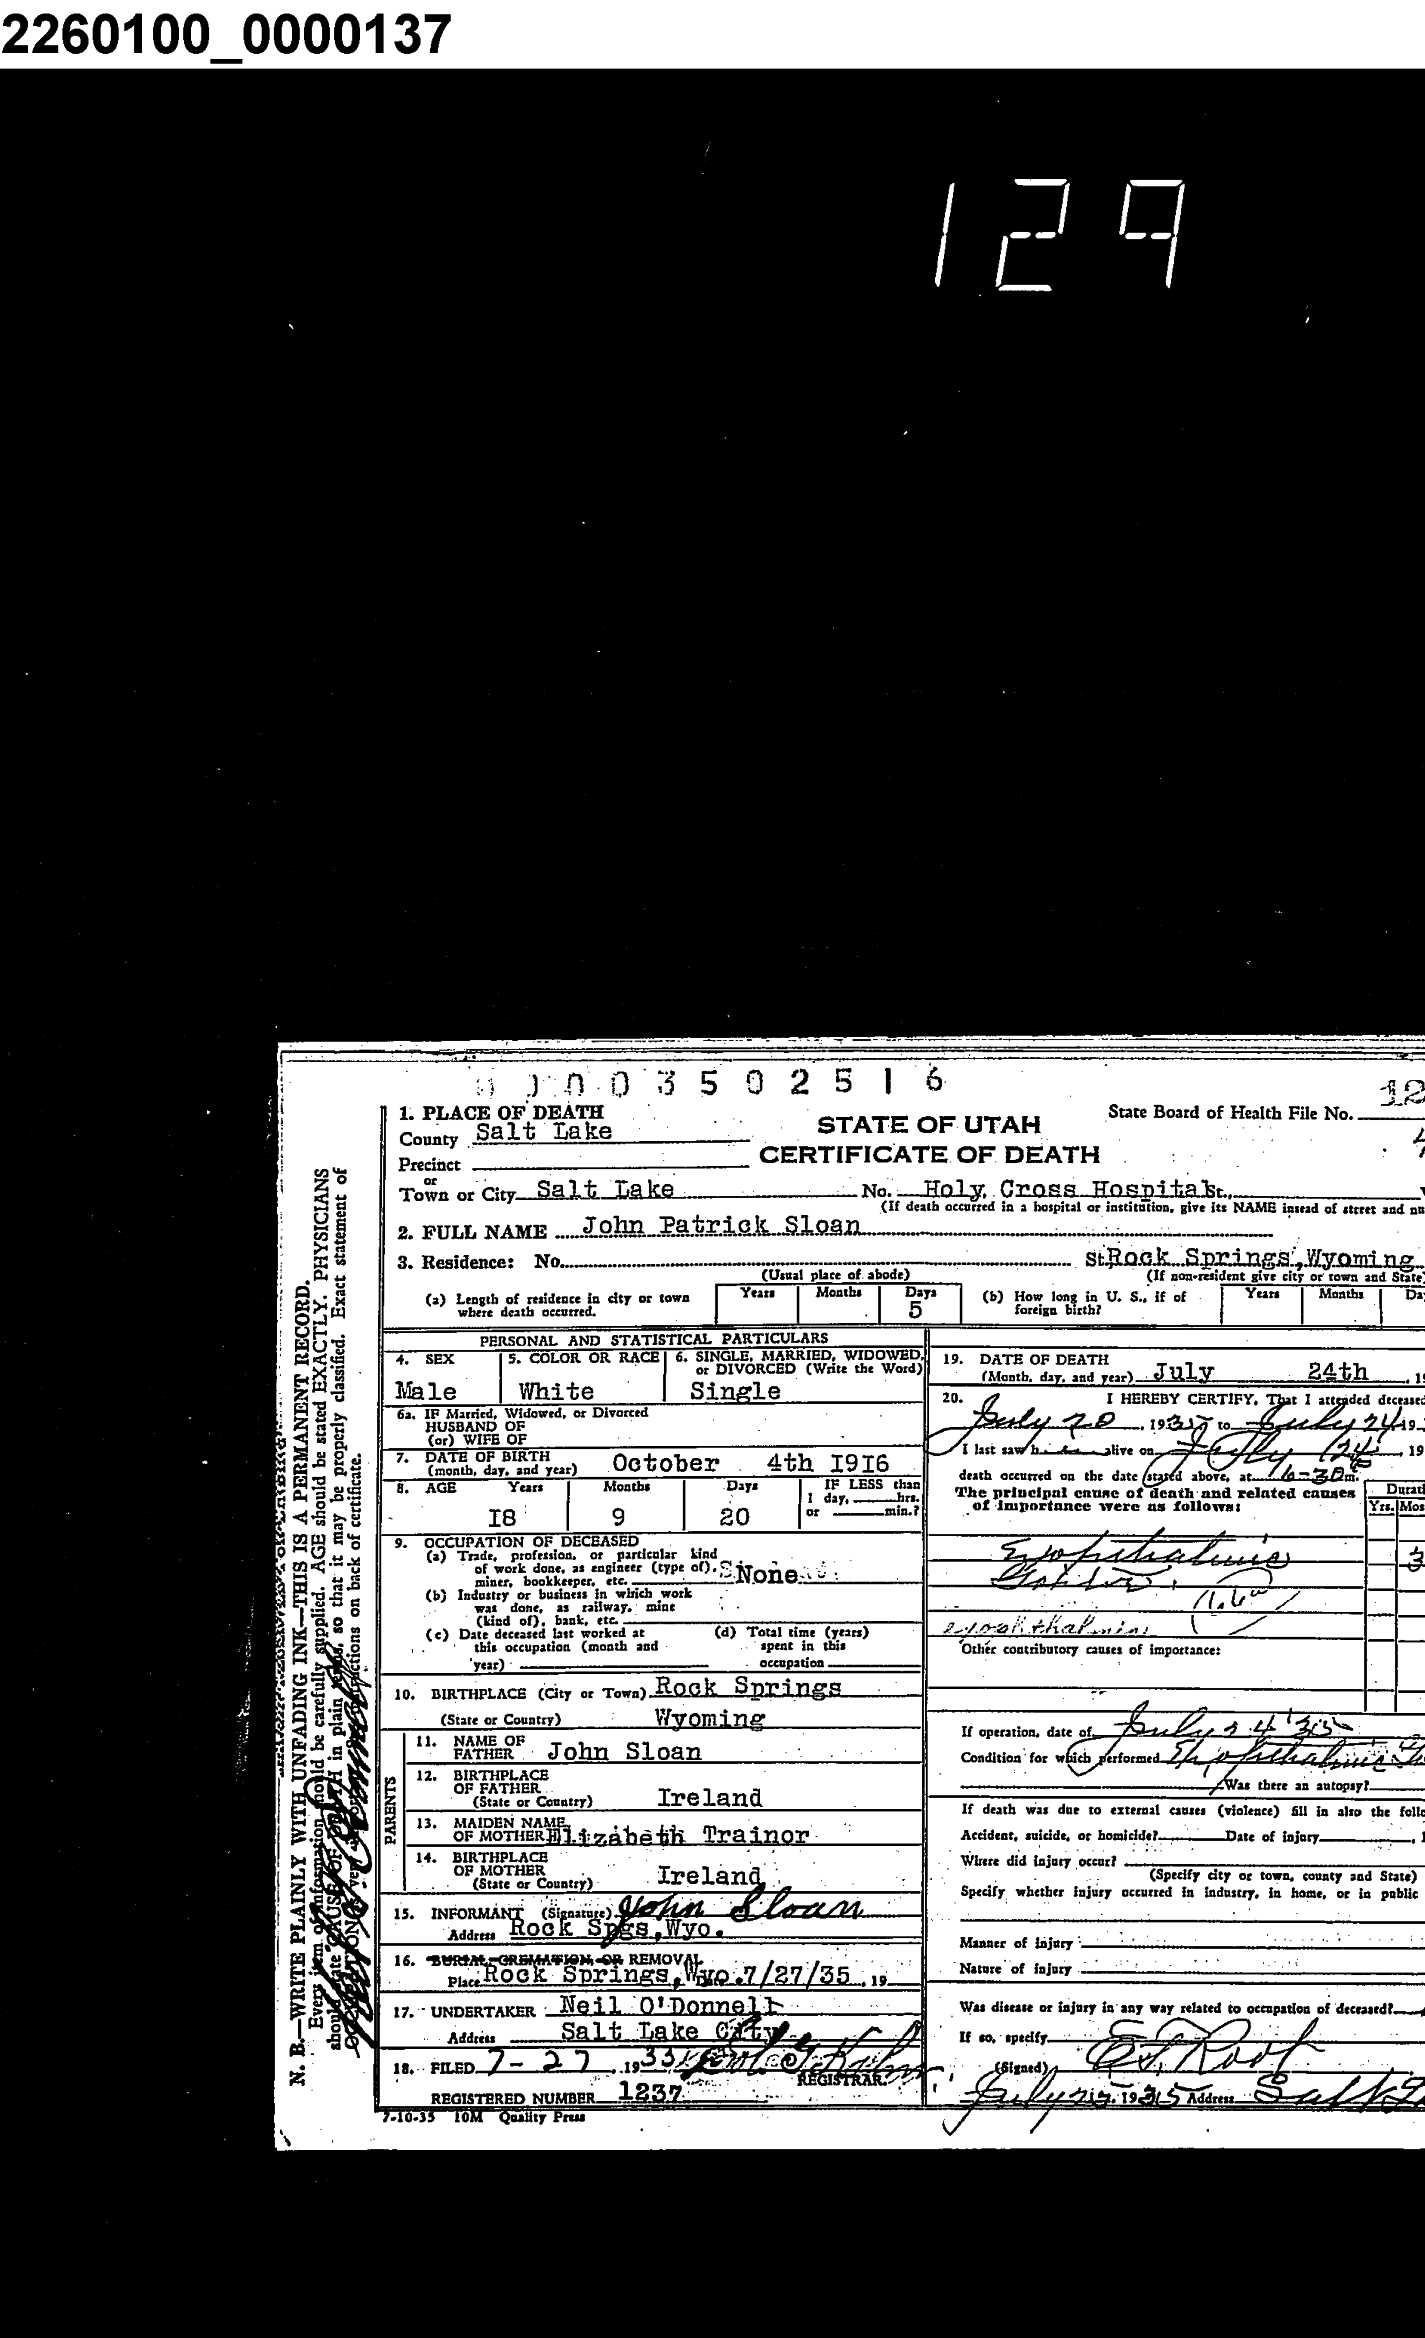 2260100_0000137
129
0003502516
12
1. PLACE OF DEATH
STATE OF UTAH
State Board of Health File No.
County Salt Lake
CERTIFICATE OF DEATH
Precinct
or
Town or City Salt Lake No. Holy Cross Hospital St.,
(If death occurred in a hospital or institution, give its NAME instead of street and nu
2. FULL NAME John Patrick Sloan
3. Residence: No. St. Rock Springs, Wyoming
(Usual place of abode) (If non-resident give city or town and State)
(a) Length of residence in city or town where death occurred. Years Months Days 5
(b) How long in U. S., if of foreign birth? Years Months Da
PERSONAL AND STATISTICAL PARTICULARS
4. SEX Male
5. COLOR OR RACE White
6. SINGLE, MARRIED, WIDOWED, or DIVORCED (Write the Word) Single
6a. IF Married, Widowed, or Divorced
HUSBAND OF
(or) WIFE OF
7. DATE OF BIRTH
(month, day, and year) October 4th I9I6
8. AGE Years Months Days IF LESS than
1 day, hrs.
or min.?
I8 9 20
9. OCCUPATION OF DECEASED
(a) Trade, profession, or particular kind
of work done, as engineer (type of),
miner, bookkeeper, etc. None
(b) Industry or business in which work
was done, as railway, mine
(kind of), bank, etc.
(c) Date deceased last worked at
this occupation (month and
year)
(d) Total time (years)
spent in this
occupation
10. BIRTHPLACE (City or Town) Rock Springs
(State or Country) Wyoming
PARENTS
11. NAME OF
FATHER John Sloan
12. BIRTHPLACE
OF FATHER
(State or Country) Ireland
13. MAIDEN NAME
OF MOTHER Elizabeth Trainor
14. BIRTHPLACE
OF MOTHER
(State or Country) Ireland
15. INFORMANT (Signature) John Sloan
Address Rock Spgs, Wyo.
16. BURIAL, CREMATION, OR REMOVAL
Place Rock Springs, Wyo. 7/27/35, 19
17. UNDERTAKER Neil O'Donnell
Address Salt Lake City
18. FILED 7-27, 19
REGISTRAR.
REGISTERED NUMBER 1237
7-10-35 10M Quality Press
19. DATE OF DEATH
(Month, day, and year) July 24th, 19
20. I HEREBY CERTIFY, That I attended deceased
July 20, 1935 to July 24 19
I last saw h alive on July 24, 19
death occurred on the date stated above, at m.
The principal cause of death and related causes
of importance were as follows:
Durati
Yrs. Mos
Exophthalmic
Goiter
3
Other contributory causes of importance:
If operation, date of July 24 '35
Condition for which performed Exophthalmic
Was there an autopsy?
If death was due to external causes (violence) fill in also the follo
Accident, suicide, or homicide? Date of injury
Where did injury occur?
(Specify city or town, county and State)
Specify whether injury occurred in industry, in home, or in public
Manner of injury
Nature of injury
Was disease or injury in any way related to occupation of deceased?
If so, specify
(Signed) Root
July 1935 Address Salt
N. B.—WRITE PLAINLY WITH UNFADING INK—THIS IS A PERMANENT RECORD.
Every item of information should be carefully supplied. AGE should be stated EXACTLY. PHYSICIANS
should state CAUSE OF DEATH in plain terms, so that it may be properly classified. Exact statement of
on back of certificate.